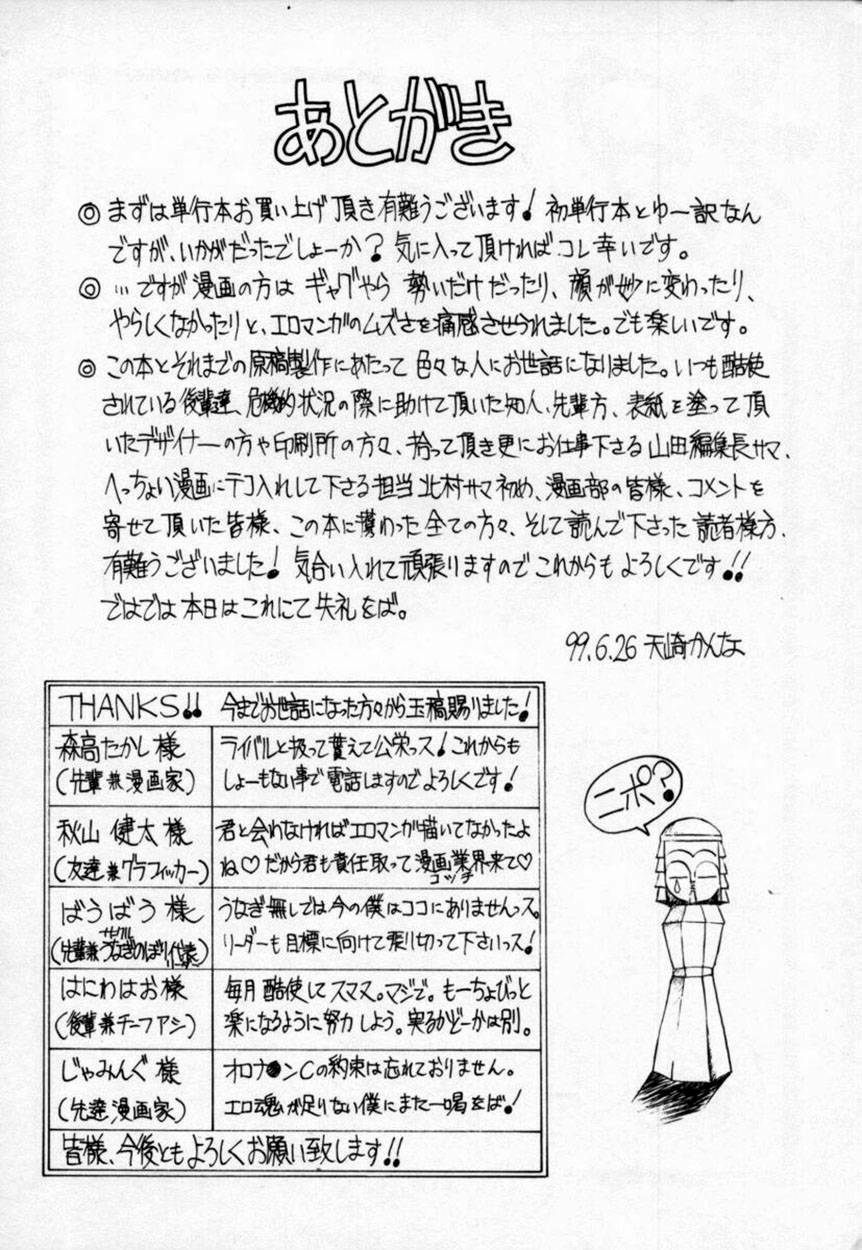 あとがき
◎ まずは単行本お買い上げ頂き有難うございます! 初単行本とゆー訳なん
ですが、いかがだったでしょーか? 気に入って頂ければコレ幸いです。
◎ …ですが漫画の方は ギャグやら 勢いだけだったり、顔が妙に変わったり、
やらしくなかったりと、エロマンガのムズさを痛感させられました。でも楽しいです。
◎ この本とそれまでの原稿製作にあたって 色々な人にお世話になりました。いつも酷使
されている後輩達、危機的状況の際に助けて頂いた知人、先輩方、表紙を塗って頂
いたデザイナーの方や印刷所の方々、拾って頂き更にお仕事下さる 山田編集長サマ、
へっちょい漫画にテコ入れして下さる担当 北村サマ初め、漫画部の皆様、コメントを
寄せて頂いた皆様、この本に携わった全ての方々、そして読んで下さった読者様方、
有難うございました! 気合い入れて頑張りますので これからも よろしくです!!
ではでは本日はこれにて失礼をば。
99.6.26 天崎かんな
THANKS!! 今までお世話になった方々から玉稿賜りました!
森高たかし様
(先輩兼漫画家)
ライバルと扱って貰えて公栄っス! これからも
しょーもない事で電話しますので よろしくです!
秋山 健太様
(友達兼グラフィッカー)
君と会わなければエロマンガ描いてなかったよ
ね♡ だから君も責任取って漫画業界来て♡
コッチ
ばうばう様
サークル
(先輩兼うなぎのぼり代表)
うなぎ無しでは今の僕はココにありませんっス。
リーダーも目標に向けて乗り切って下さいっス!
はにわはお様
(後輩兼チーフアシ)
毎月酷使してスマヌ。マジで。もーちょびっと
楽になるように努力しよう。実るかどーかは別。
じゃみんぐ様
(先達漫画家)
オロナ●ンCの約束は忘れておりません。
エロ魂が足りない僕にまた一喝をば!
皆様、今後ともよろしくお願い致します!!
ニポ?